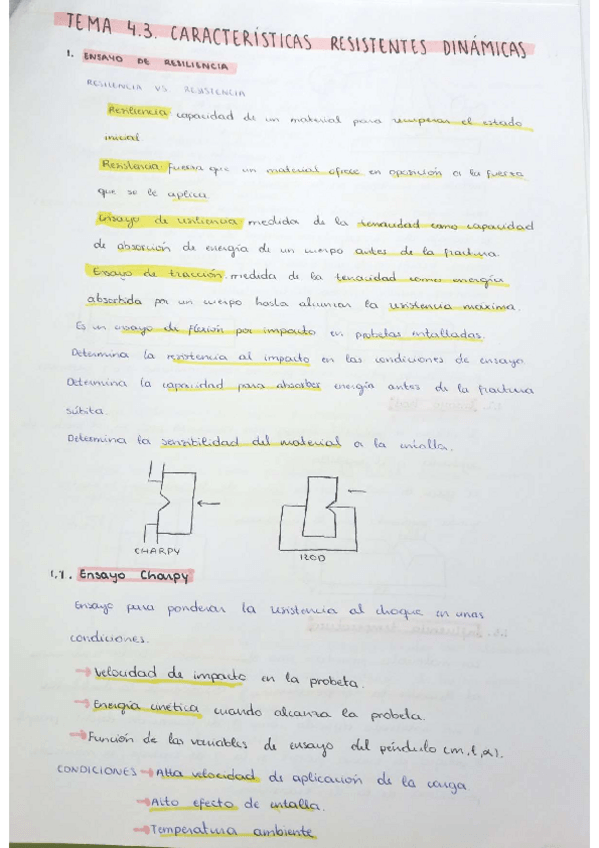 TEMA 4.3. CARACTERÍSTICAS RESISTENTES DINÁMICAS
1. ENSAYO DE RESILIENCIA
RESILIENCIA VS RESISTENCIA
Resiliencia capacidad de un material para recuperar el estado
inicial
Resistencia fuerza que un material ofrece en oposición a la fuerza
que se le aplica
Ensayo de resiliencia medida de la tenacidad como capacidad
de absorción de energía de un cuerpo antes de la fractura.
Ensayo de tracción medida de la tenacidad como energía
absorbida por un cuerpo hasta alcanzar la resistencia máxima.
Es un ensayo de flexión por impacto en probetas entalladas.
Determina la resistencia al impacto en las condiciones de ensayo
Determina la capacidad para absorber energía antes de la fractura
súbita.
Determina la sensibilidad del material a la entalla.
CHARPY
IZOD
1.1. Ensayo Charpy
Ensayo para ponderar la resistencia al choque en unas
condiciones.
→ Velocidad de impacto en la probeta.
→ Energía cinética cuando alcanza la probeta.
→ Función de las variables de ensayo del péndulo (m, l, α).
CONDICIONES → Alta velocidad de aplicación de la carga
→ Alto efecto de entalla.
→ Temperatura ambiente